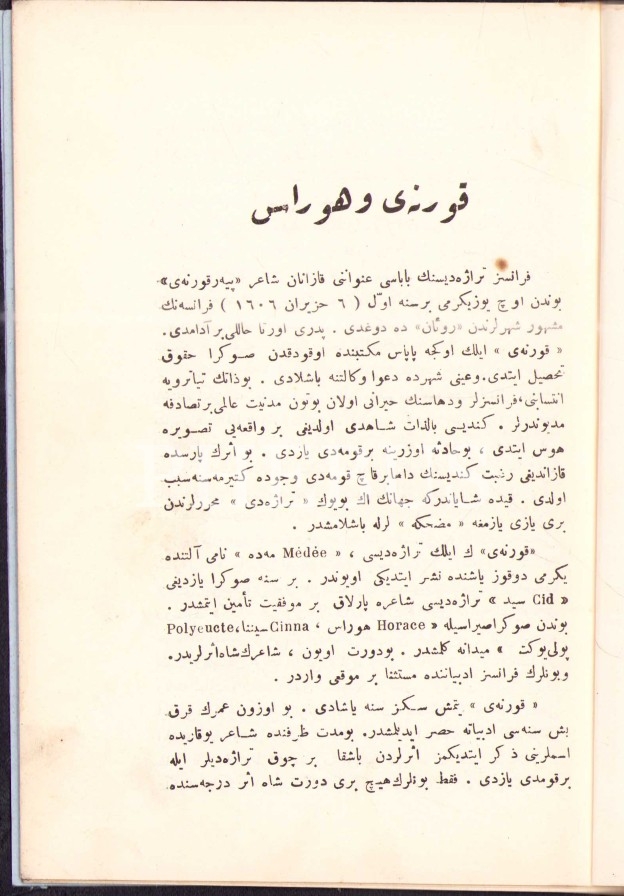 قورنه‌ی و هوراس
فرانسز تراژه‌ديسنك باباسی عنوانی قازانان شاعر «پيه‌رقورنه‌ی»
بوندن اوچ يوزيكرمی برسنه اوّل ( ٦ حزيران ١٦٠٦ ) فرانسه‌نك
مشهور شهرلرندن «روئان» ده دوغدی . پدری اورتا حاللی بر آدامدی.
« قورنه‌ی » ايلك اوكجه پاپاس مكتبنده اوقودقدن صوكرا حقوق
تحصيل ايتدی.وعينی شهرده دعوا وكالتنه باشلادی . بوذاتك تياترويه
انتسابنی،فرانسزلر ودهاسنك حيرانی اولان بوتون مدنيت عالمی برتصادفه
مديوندرلر . كنديسی بالذات شاهدی اولديغی بر واقعه‌يی تصويره
هوس ايتدی ، بوحادثه اوزرينه برقومه‌دی يازدی . بو أثرك پارسده
قازانديغی رغبت كنديسنك داها برقاچ قومه‌دی وجوده كتيرمه‌سنه سبب
اولدی . قيده شاياندركه جهانك اك بويوك « تراژه‌دی » محررلرندن
بری يازی يازمغه « مضحكه » لرله باشلامشدر .
«قورنه‌ی» ك ايلك تراژه‌ديسی ، « Médée مه‌ده » نامی آلتنده
يكرمی دوقوز ياشنده نشر ايتديكی اويوندر . بر سنه صوكرا يازديغی
« Cid سيد » تراژه‌ديسی شاعره پارلاق بر موفقيت تأمين ايتمشدر .
بوندن صوكراصيراسيله « Horace هوراس ، Cinna سيننا، Polyeucte
پولی‌يوكت » ميدانه كلمشدر . بودورت اويون ، شاعرك شاه‌أثرلريدر.
وبونلرك فرانسز ادبياتنده مستثنا بر موقعی واردر .
« قورنه‌ی » يتمش سكز سنه ياشادی . بو اوزون عمرك قرق
بش سنه‌سی ادبياته حصر ايديلمشدر. بومدت ظرفنده شاعر يوقاريده
اسملرينی ذكر ايتديكمز أثرلردن باشقا بر چوق تراژه‌ديلر ايله
برقومدی يازدی . فقط بونلرك هيچ بری دورت شاه أثر درجه‌سنده